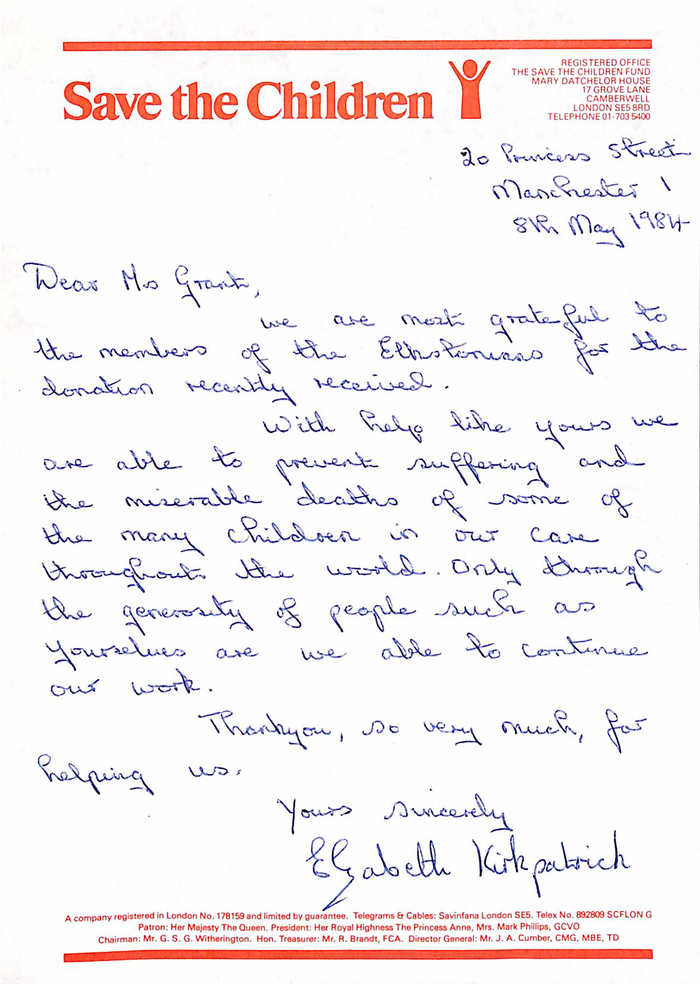 Save the Children
REGISTERED OFFICE
THE SAVE THE CHILDREN FUND
MARY DATCHELOR HOUSE
17 GROVE LANE
CAMBERWELL
LONDON SE5 8RD
TELEPHONE 01-703 5400
20 Princess Street
Manchester 1
8th May 1984
Dear Ms Grant,
we are most grateful to
the members of the Elkstonians for the
donation recently received.
With help like yours we
are able to prevent suffering and
the miserable deaths of some of
the many children in our care
throughout the world. Only through
the generosity of people such as
yourselves are we able to continue
our work.
Thankyou, so very much, for
helping us.
Yours sincerely
Elizabeth Kirkpatrick
A company registered in London No. 178159 and limited by guarantee. Telegrams & Cables: Savinfana London SE5. Telex No. 892809 SCFLON G
Patron: Her Majesty The Queen. President: Her Royal Highness The Princess Anne, Mrs. Mark Phillips, GCVO
Chairman: Mr. G. S. G. Witherington. Hon. Treasurer: Mr. R. Brandt, FCA. Director General: Mr. J. A. Cumber, CMG, MBE, TD